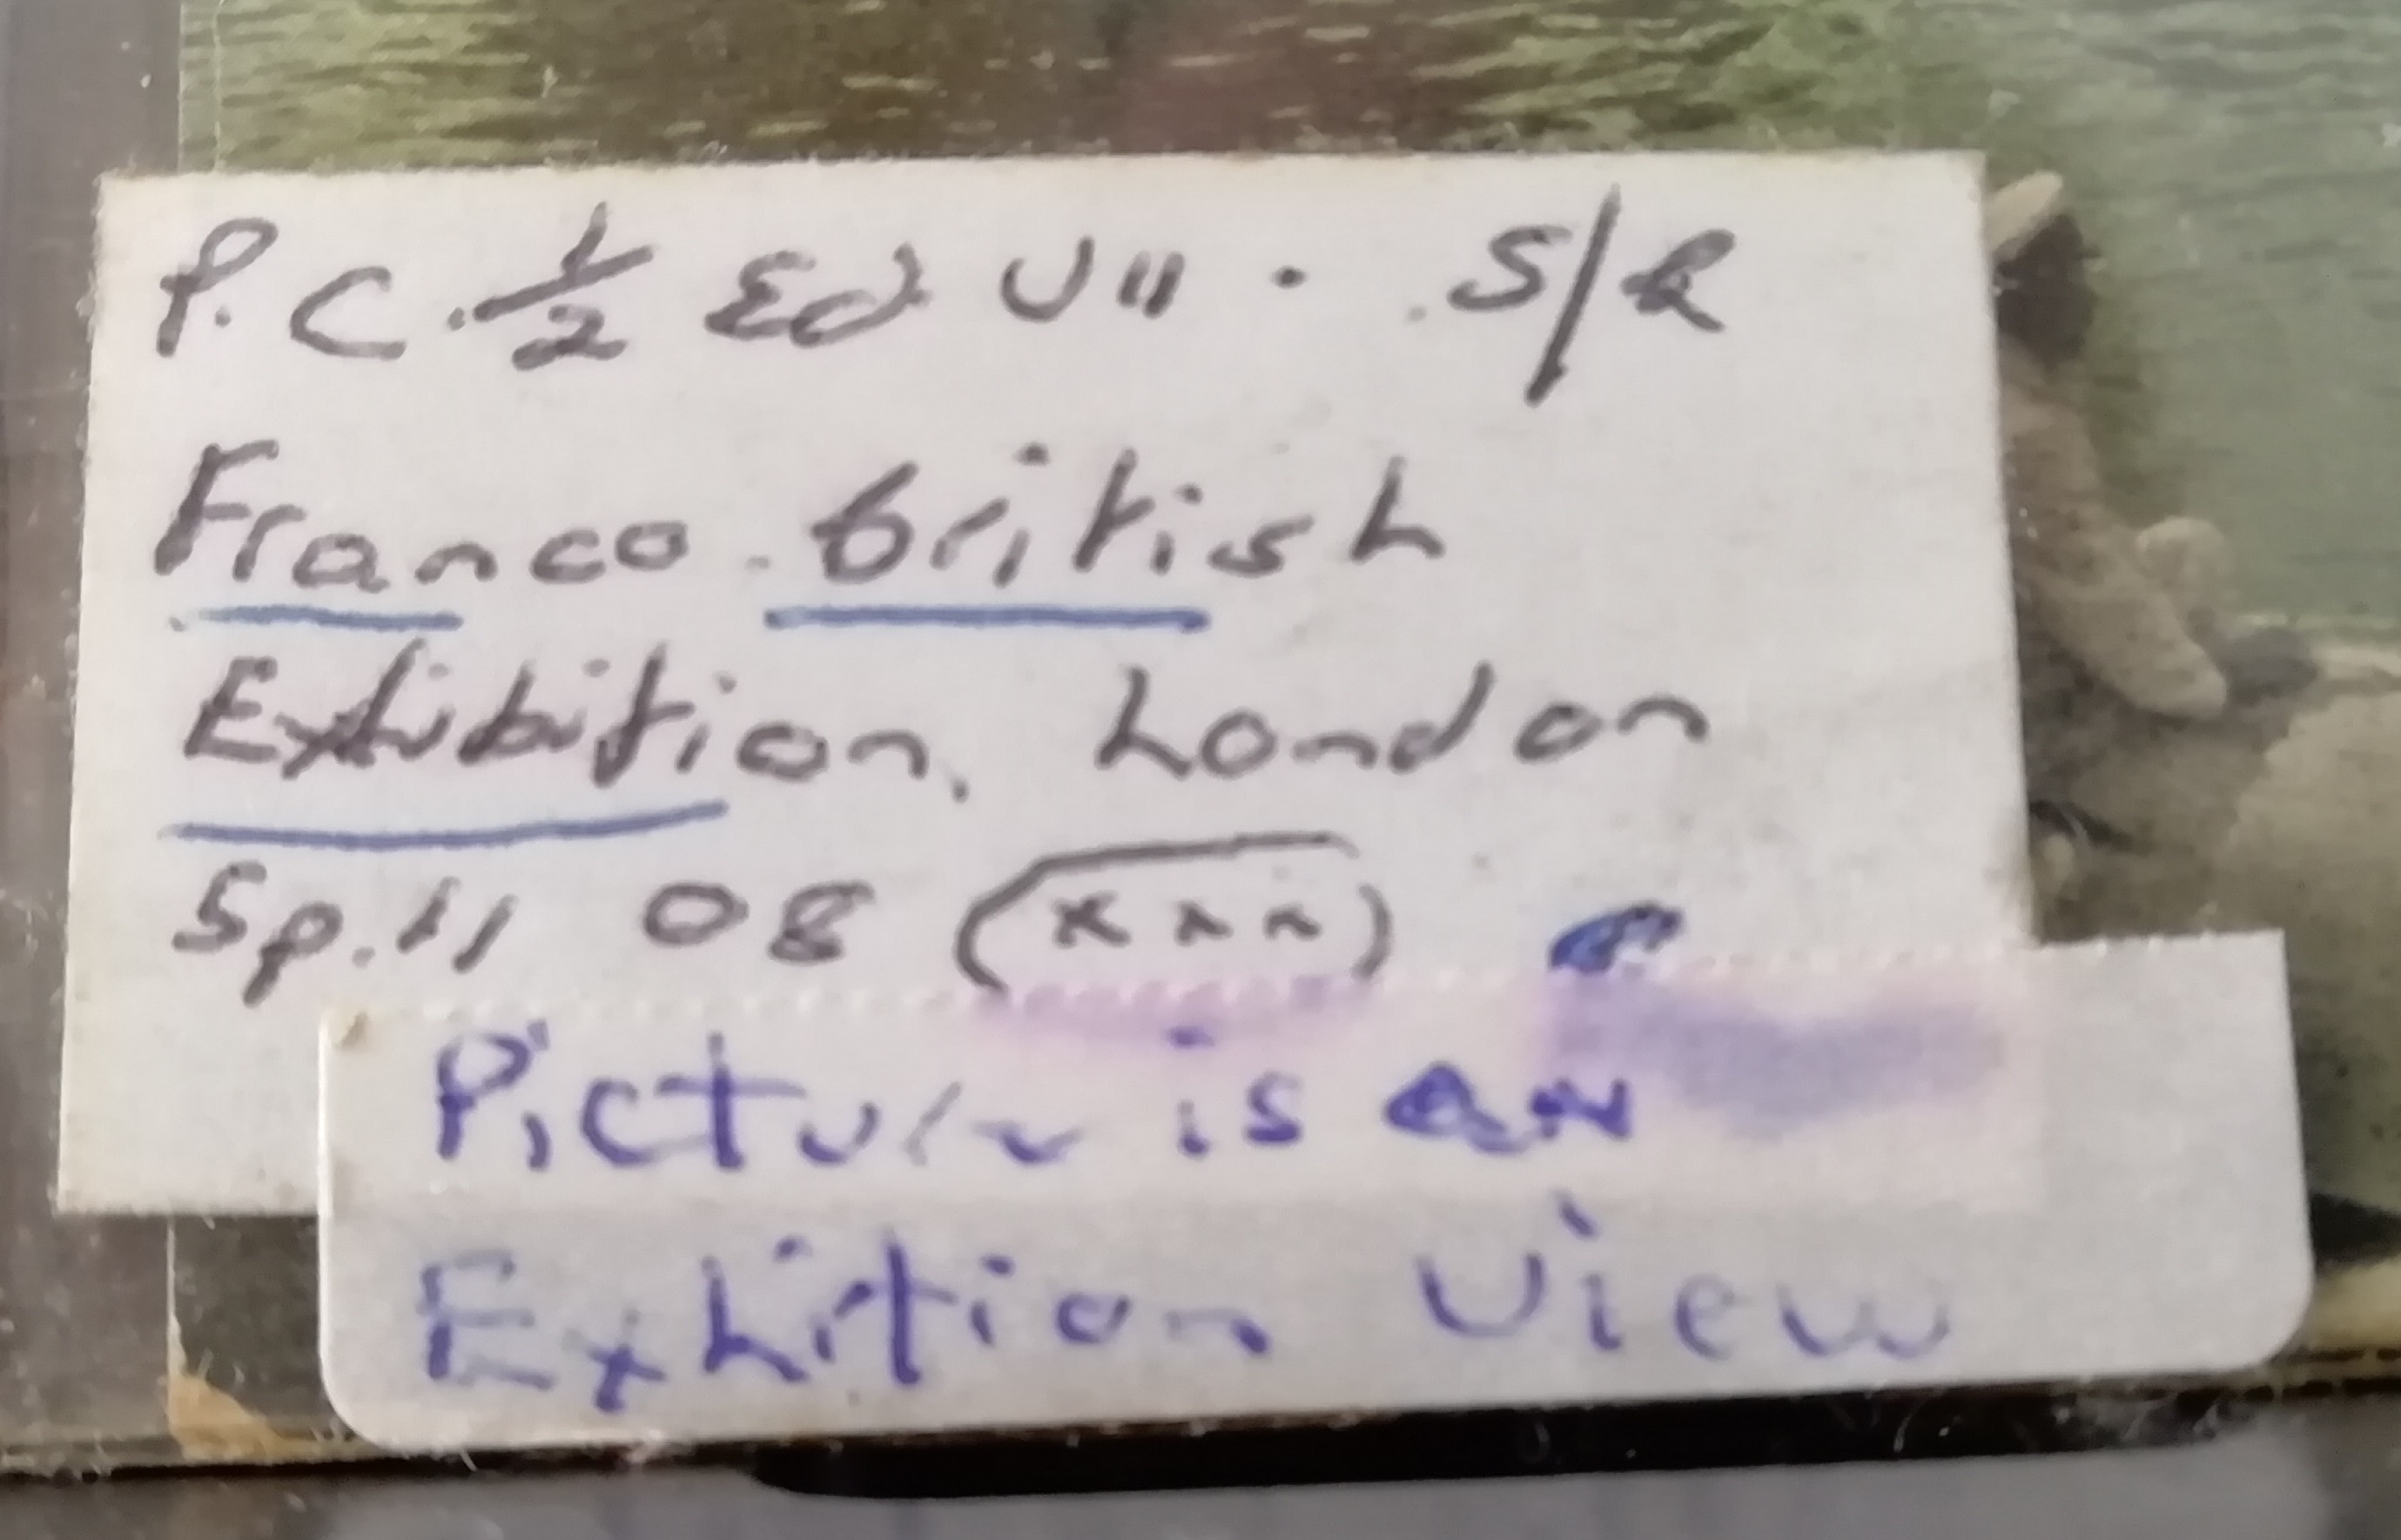 P.C. ½ Ed VII . S/R
Franco. British
Exhibition, London
Sp. 11 08 (xxx)
Picture is an
Exhition View